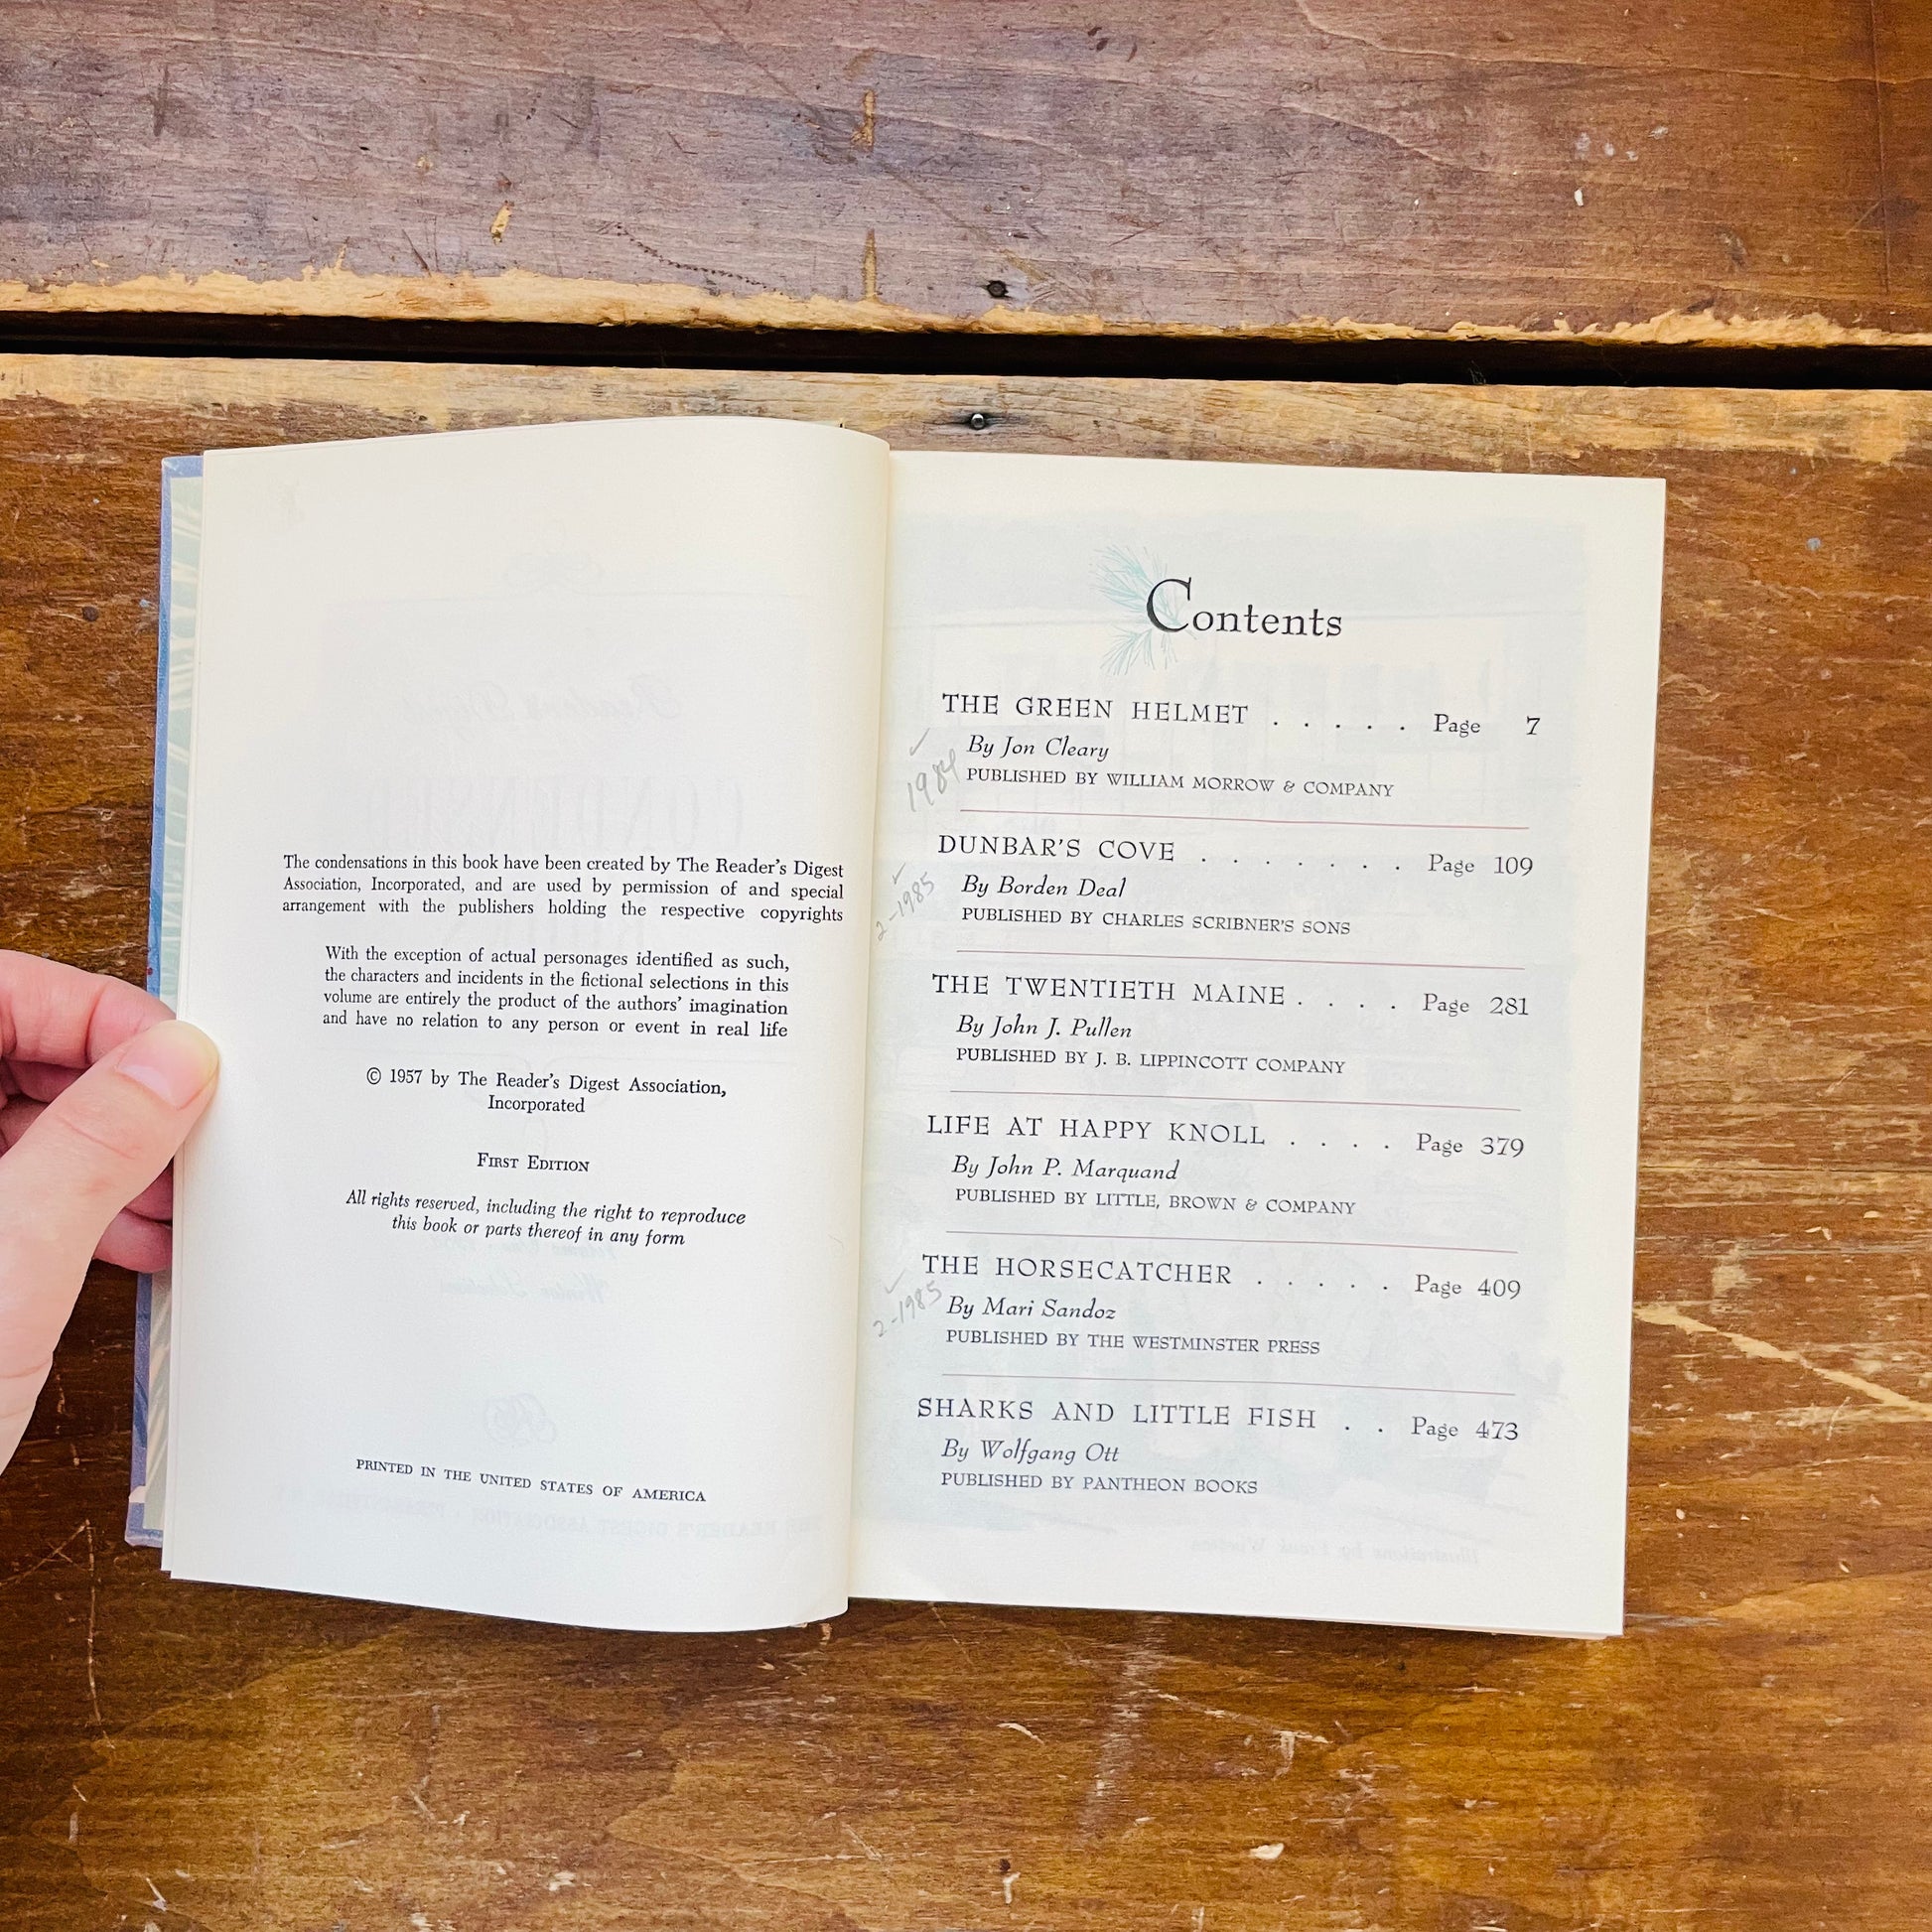 The condensations in this book have been created by The Reader's Digest
Association, Incorporated, and are used by permission of and special
arrangement with the publishers holding the respective copyrights
With the exception of actual personages identified as such,
the characters and incidents in the fictional selections in this
volume are entirely the product of the authors' imagination
and have no relation to any person or event in real life
© 1957 by The Reader's Digest Association,
Incorporated
First Edition
All rights reserved, including the right to reproduce
this book or parts thereof in any form
PRINTED IN THE UNITED STATES OF AMERICA
Contents
THE GREEN HELMET . . . . . Page 7
✓ By Jon Cleary
1984 PUBLISHED BY WILLIAM MORROW & COMPANY
DUNBAR'S COVE . . . . . . . Page 109
✓ By Borden Deal
2-1985 PUBLISHED BY CHARLES SCRIBNER'S SONS
THE TWENTIETH MAINE . . . . Page 281
By John J. Pullen
PUBLISHED BY J. B. LIPPINCOTT COMPANY
LIFE AT HAPPY KNOLL . . . . Page 379
By John P. Marquand
PUBLISHED BY LITTLE, BROWN & COMPANY
THE HORSECATCHER . . . . . Page 409
✓ By Mari Sandoz
2-1985 PUBLISHED BY THE WESTMINSTER PRESS
SHARKS AND LITTLE FISH . . Page 473
By Wolfgang Ott
PUBLISHED BY PANTHEON BOOKS